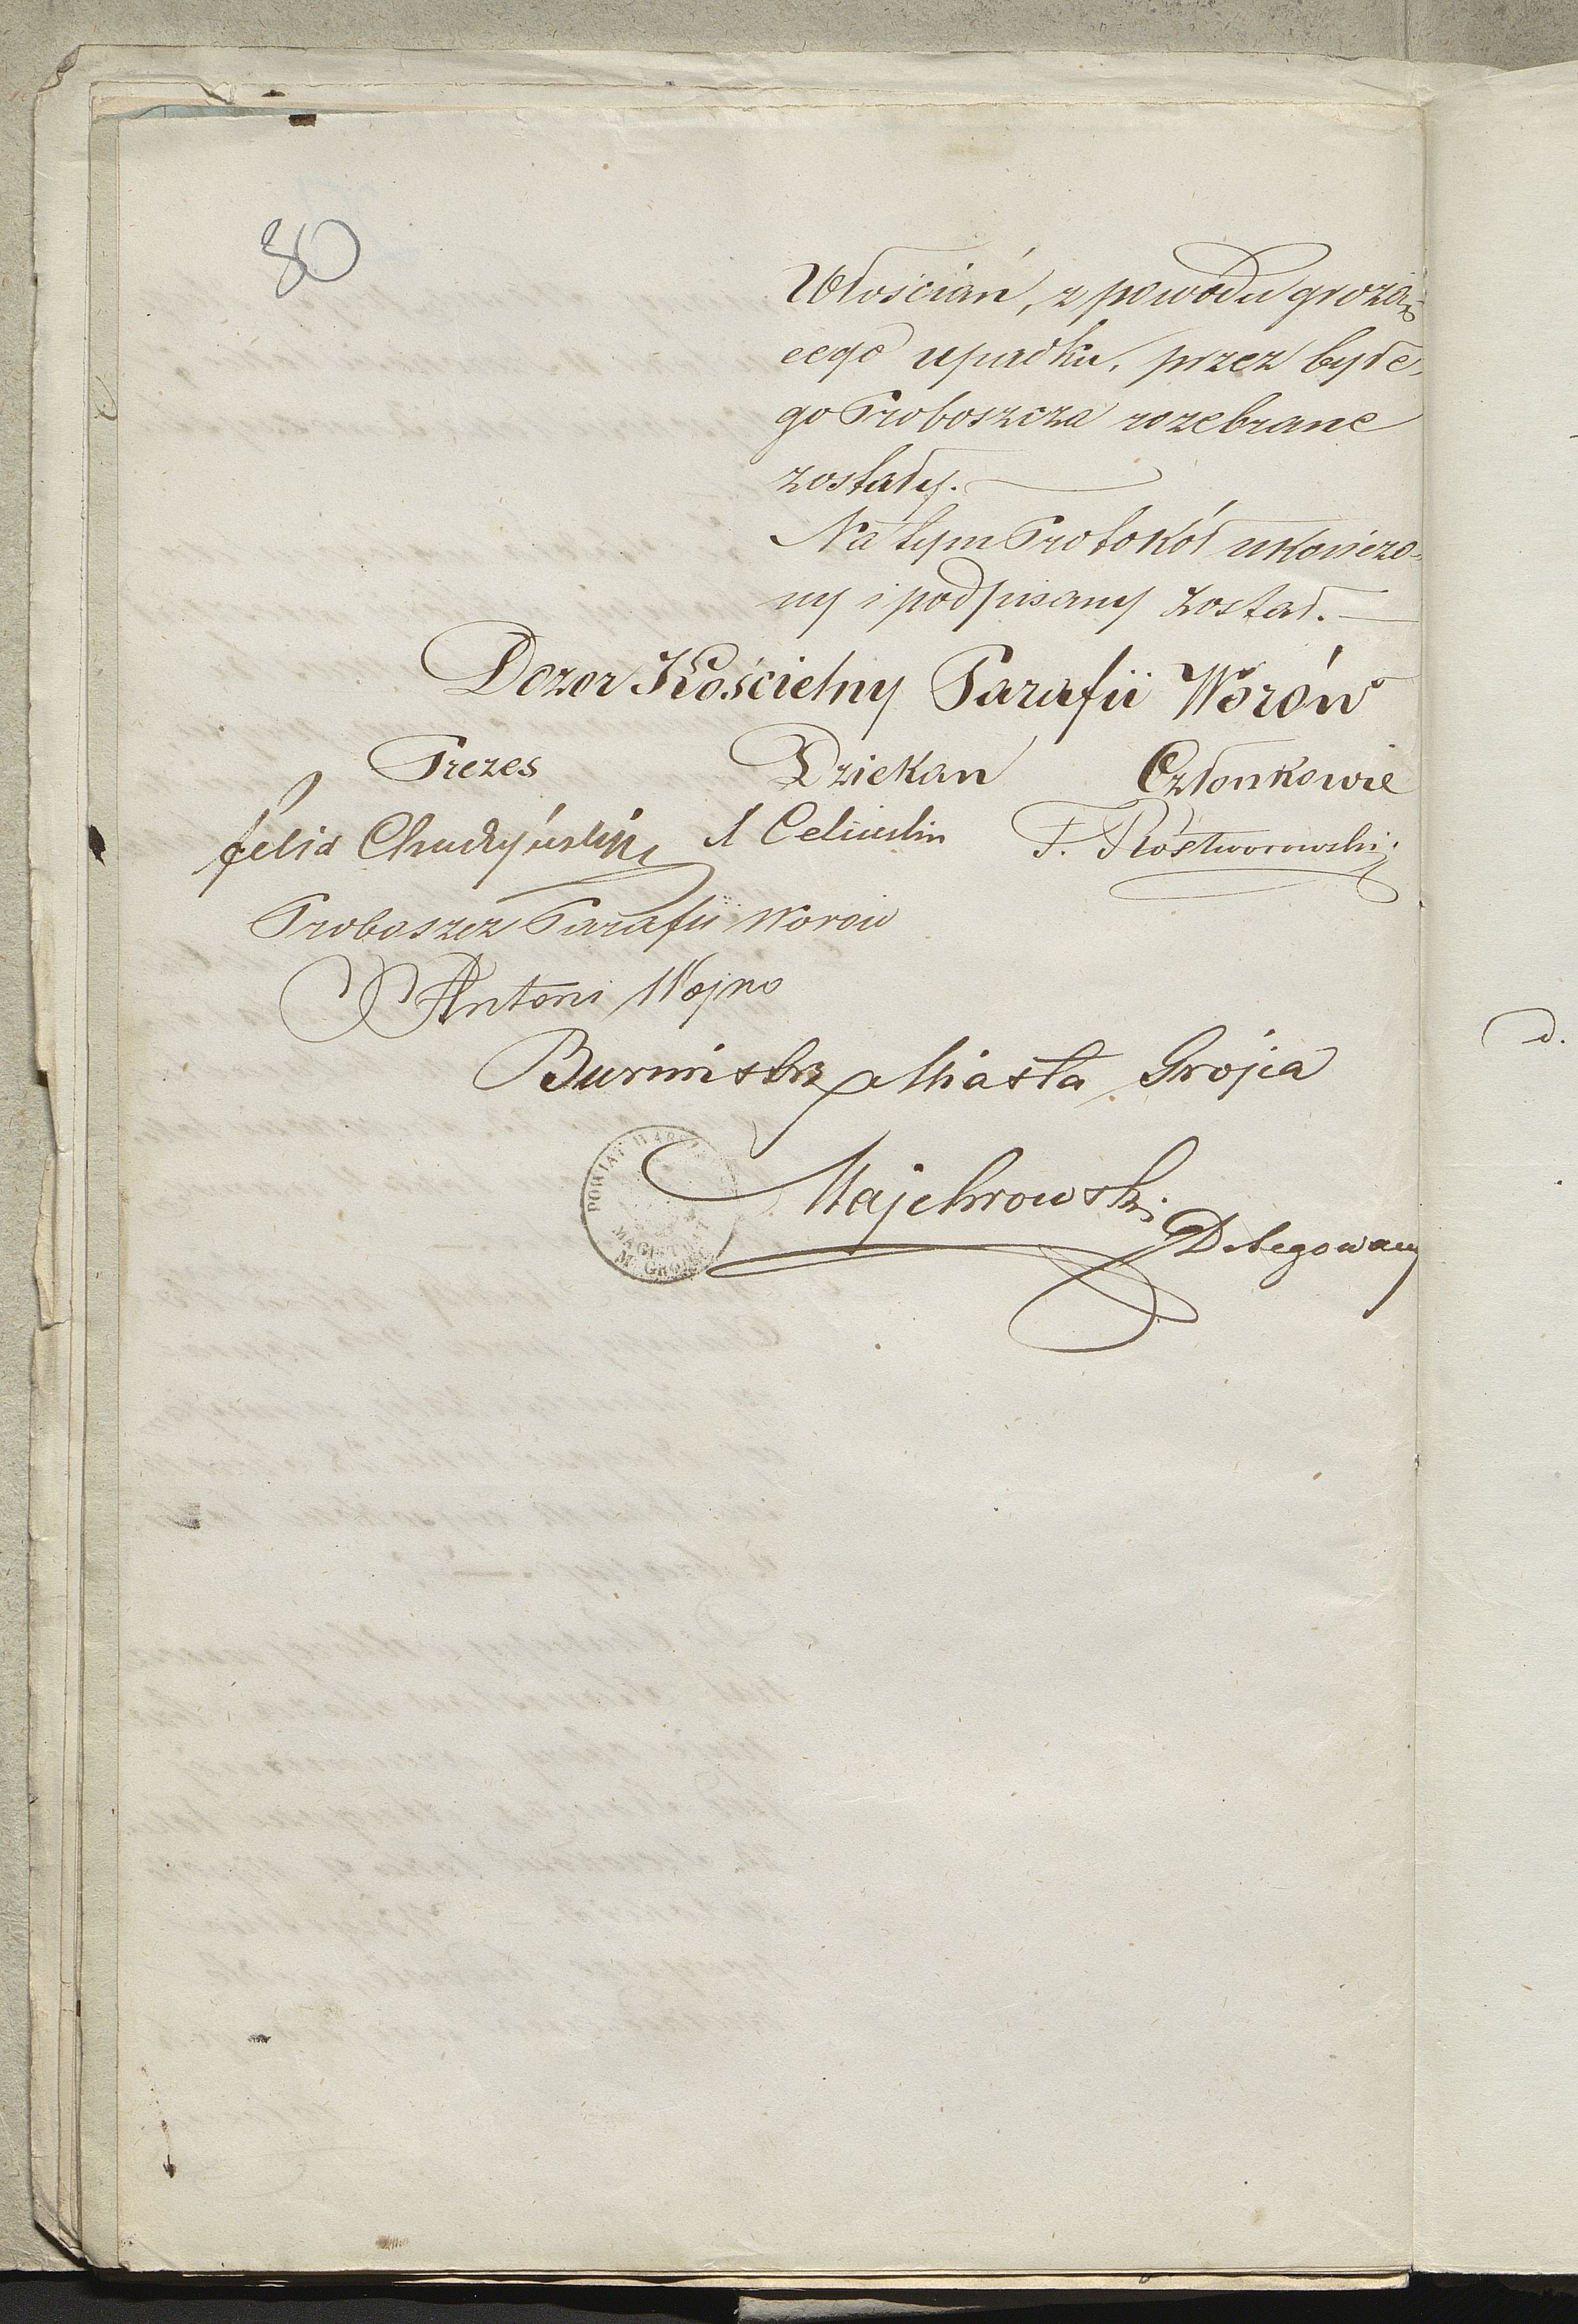 80
Włościan, z powodu grożą,
cego upadku, przez byłe,
go Proboszcza rozebrane
zostały.
Na tym Protokół ukończo,
ny i podpisany został.
Dozor Kościelny Parafii Worów
Prezes Dziekan Członkowie
Felix F. Rostworowski
Proboszcz Parafii Worow
X Antoni Wojno
Burmistrz Miasta Grojca
Majchrowski
Delegowany
POWIAT WARSZ
MAGISTRAT
M. GROJEC
d.